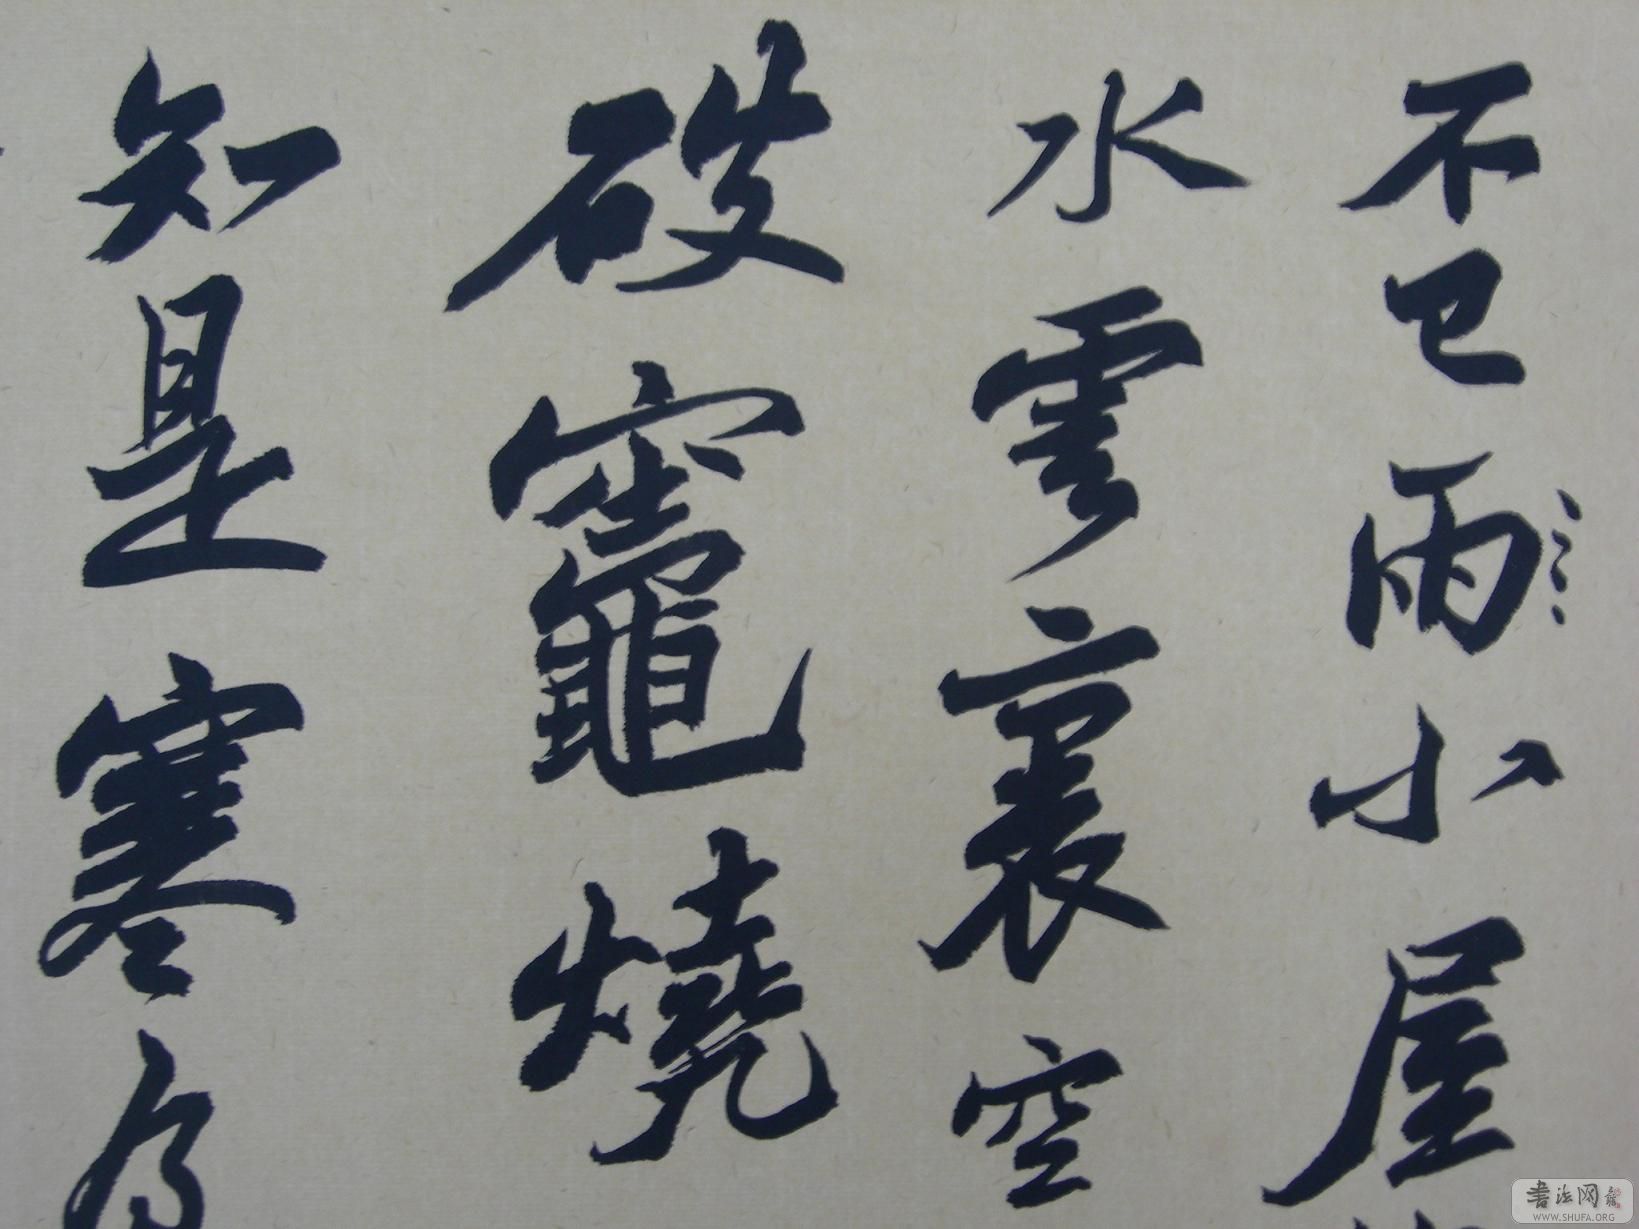 不已雨小屋
水雲裏空
破竈燒
知是寒
書法网
WWW.SHUFA.ORG